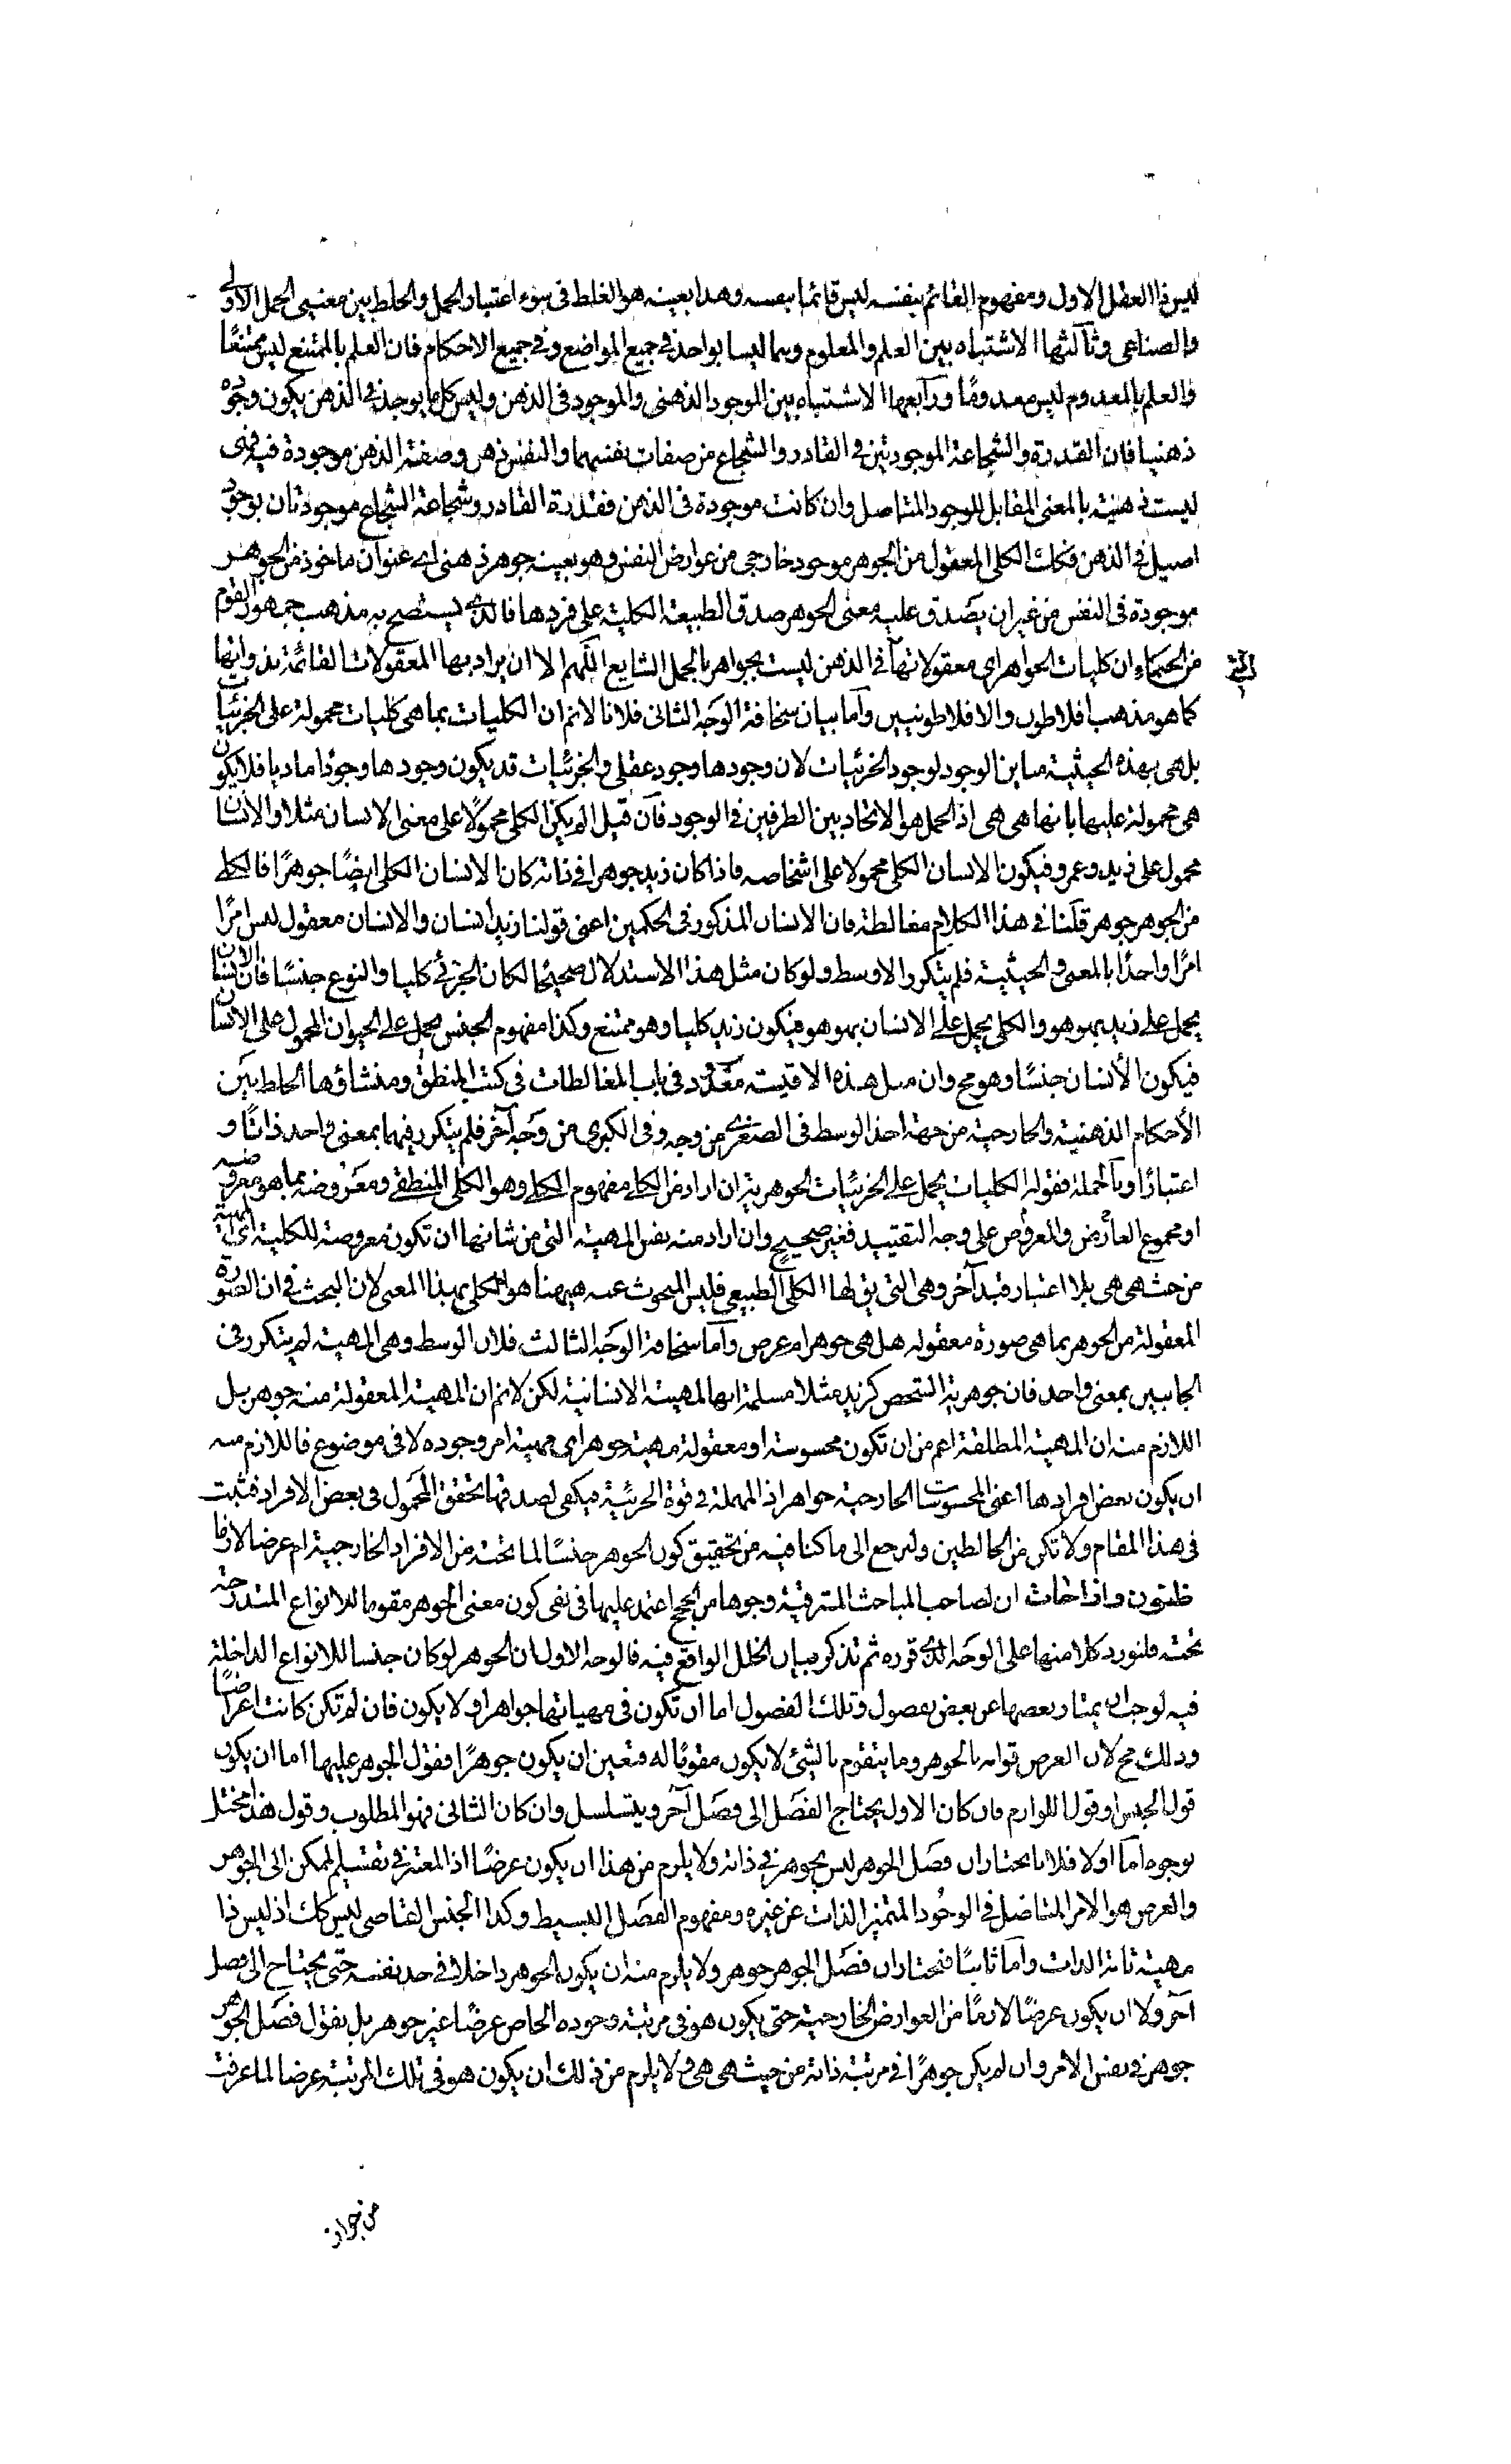 ليس فى العقل الاول ومفهوم القائم بنفسه ليس قائما بنفسه وهذا بعينه هو الغلط فى سوء اعتبار الحمل والخلط بين معنيى الحمل الاولى
والصناعى وثالثها الاشتباه بين العلم والمعلوم وهما ليسا بواحد فى جميع المواضع وفى جميع الاحكام فان العلم بالممتنع ليس ممتنعًا
والعلم بالمعدوم ليس معدومًا ورابعها الاشتباه بين الموجود الذهنى والموجود فى الذهن وليس كل ما يوجد فى الذهن يكون وجوده
ذهنيا فان القدرة والشجاعة الموجودتين فى القادر والشجاع من صفات نفسيهما والنفس ذهن وصفة الذهن موجودة فيه فهى
ليست ذهنية بالمعنى المقابل للوجود المتاصل وان كانت موجودة فى الذهن فقدرة القادر وشجاعة الشجاع موجودتان بوجود
اصيل فى الذهن فكك الكلى المعقول من الجوهر موجود خارجى من عوارض النفس وهو بعينه جوهر ذهنى اى عنوان ماخوذ من الجوهر
موجودة فى النفس من غير ان يصدق عليه معنى الجوهر صدق الطبيعة الكلية على فردها فالذى يستصح به مذهب جمهور القوم
من الحكماء ان كليات الجواهر اى معقولاتها فى الذهن ليست بجواهر بالحمل الشايع اللهم الا ان يراد بها المعقولات القائمة بذواتها
كما هو مذهب افلاطون والافلاطونيين وآما بيان سخافة الوجه الثانى فلانا لا نم ان الكليات بما هى كليات محمولة على الجزئيات
بل هى بهذه الحيثية مباين الوجود لوجود الجزئيات لان وجودها وجود عقلى والجزئيات قد يكون وجودها وجودًا ماديا فلا يكون
هى محمولة عليها بانها هى هى اذ الحمل هو الاتحاد بين الطرفين فى الوجود فآن قيل الم يكن الكلى محمولًا على معنى الانسان مثلا والانسان
محمول على زيد وعمرو فيكون الانسان الكلى محمولا على اشخاصه فاذا كان زيد جوهرا فى ذاته كان الانسان الكلى ايضًا جوهرًا فالكلى
من الجوهر جوهر قلنا فى هذا الكلام مغالطة فان الانسان المذكور فى الحكمين اعنى قولنا زيد انسان والانسان معقول ليس امرًا
امرًا واحدًا بالمعنى والحيثية فلم يتكرر الاوسط ولو كان مثل هذا الاستدلال صحيحًا لكان الجزئى كليا والنوع جنسًا فان الانسان
يحمل على زيد بهو هو والكلى يحمل على الانسان بهو هو فيكون زيد كليا وهو ممتنع وكذا مفهوم الجنس يحمل على الحيوان المحمول على الانسان
فيكون الأنسان جنسًا وهو مح وان مثل هذه الاقيسة معدود فى باب المغالطات فى كتب المنطق ومنشاؤها الخلط بين
الأحكام الذهنية والخارجية من جهة اخذ الوسط فى الصغرى من وجه وفى الكبرى من وجه آخر فلم يتكرر فيهما بمعنى واحد ذاتًا و
اعتبارًا وبالجملة فقوله الكليات يحمل على الجزئيات الجوهرية ان اراد من الكلى مفهوم الكلى وهو الكلى المنطقى ومعروضه بما هو معروضه
او مجموع العارض والمعروض على وجه التقييد فغير صحيح وان اراد منه نفس المهية التى من شانها ان تكون معروضة للكلية اى المهية
من حيث هى هى بلا اعتبار قيد آخر وهى التى يق لها الكلى الطبيعى فليس المبحوث عنه هيهنا هو الكلى بهذا المعنى لان البحث فى ان الصورة
المعقولة من الجوهر بما هى صورة معقولة هل هى جوهر ام عرض وآما سخافة الوجه الثالث فلان الوسط وهى المهية لم يتكرر فى
الجانبين بمعنى واحد فان جوهرية الشخص كزيد مثلا مسلمة انها المهية الانسانية لكن لا نم ان المهية المعقولة منه جوهر بل
اللازم منه ان المهية المطلقة اعم من ان تكون محسوسة او معقولة مهية جوهر اى مهية امر وجوده لا فى موضوع فاللازم منه
ان يكون بعض افرادها اعنى المحسوسات الخارجية جواهر اذ المهملة فى قوة الجزئية فيكفى لصدقها تحقق المحمول فى بعض الافراد فتثبت
فى هذا المقام ولا تكن من الخالطين ولنرجع الى ما كنا فيه من تحقيق كون الجوهر جنسًا لما تحته من الافراد الخارجية ام عرضا لازما
فنقول واذا اتاك ان لصاحب المباحث المشرقية وجوها من الحجج اعتمد عليها فى نفى كون معنى الجوهر مقوما للانواع المندرجة
تحته فلنورد كلا منها على الوجه الذى قرره ثم تذكر بيان الخلل الواقع فيه فالوجه الاول ان الجوهر لو كان جنسا للانواع الداخلة
فيه لوجب ان يمتاز بعضها عن بعض بفصول وتلك الفصول اما ان تكون فى مهياتها جواهر او لا يكون فان لم تكن كانت اعراضًا
وذلك مح لان العرض قوامه بالجوهر وما يتقوم بالشئ لا يكون مقومًا له فتعين ان يكون جوهرًا فقول الجوهر عليها اما ان يكون
قول الجنس او قول اللوازم فان كان الاول يحتاج الفصل الى فصل آخر ويتسلسل وان كان الثانى فهو المطلوب وقول هذا مختل
بوجوه آما اولا فلانا نختار ان فصل الجوهر ليس بجوهر فى ذاته ولا يلزم من هذا ان يكون عرضًا اذ المعتبر فى تقسيم الممكن الى الجوهر
والعرض هو الامر المتاصل فى الوجود المتميز الذات عن غيره ومفهوم الفصل البسيط وكذا الجنس القاصى ليس كك اذ ليس ذا
مهية تامة الذات وآما ثانيًا فنختار ان فصل الجوهر جوهر ولا يلزم منه ان يكون الجوهر داخلا فى حد نفسه حتى يحتاج الى فصل
آخر ولا ان يكون عرضًا لازمًا من العوارض الخارجية حتى يكون هو فى مرتبة وجوده الخاص عرضًا غير جوهر بل نقول فصل الجوهر
جوهر فى نفس الامر وان لم يكن جوهرًا فى مرتبة ذاته من حيث هى هى ولا يلزم من ذلك ان يكون هو فى تلك المرتبة عرضا لما عرفت
من جواز